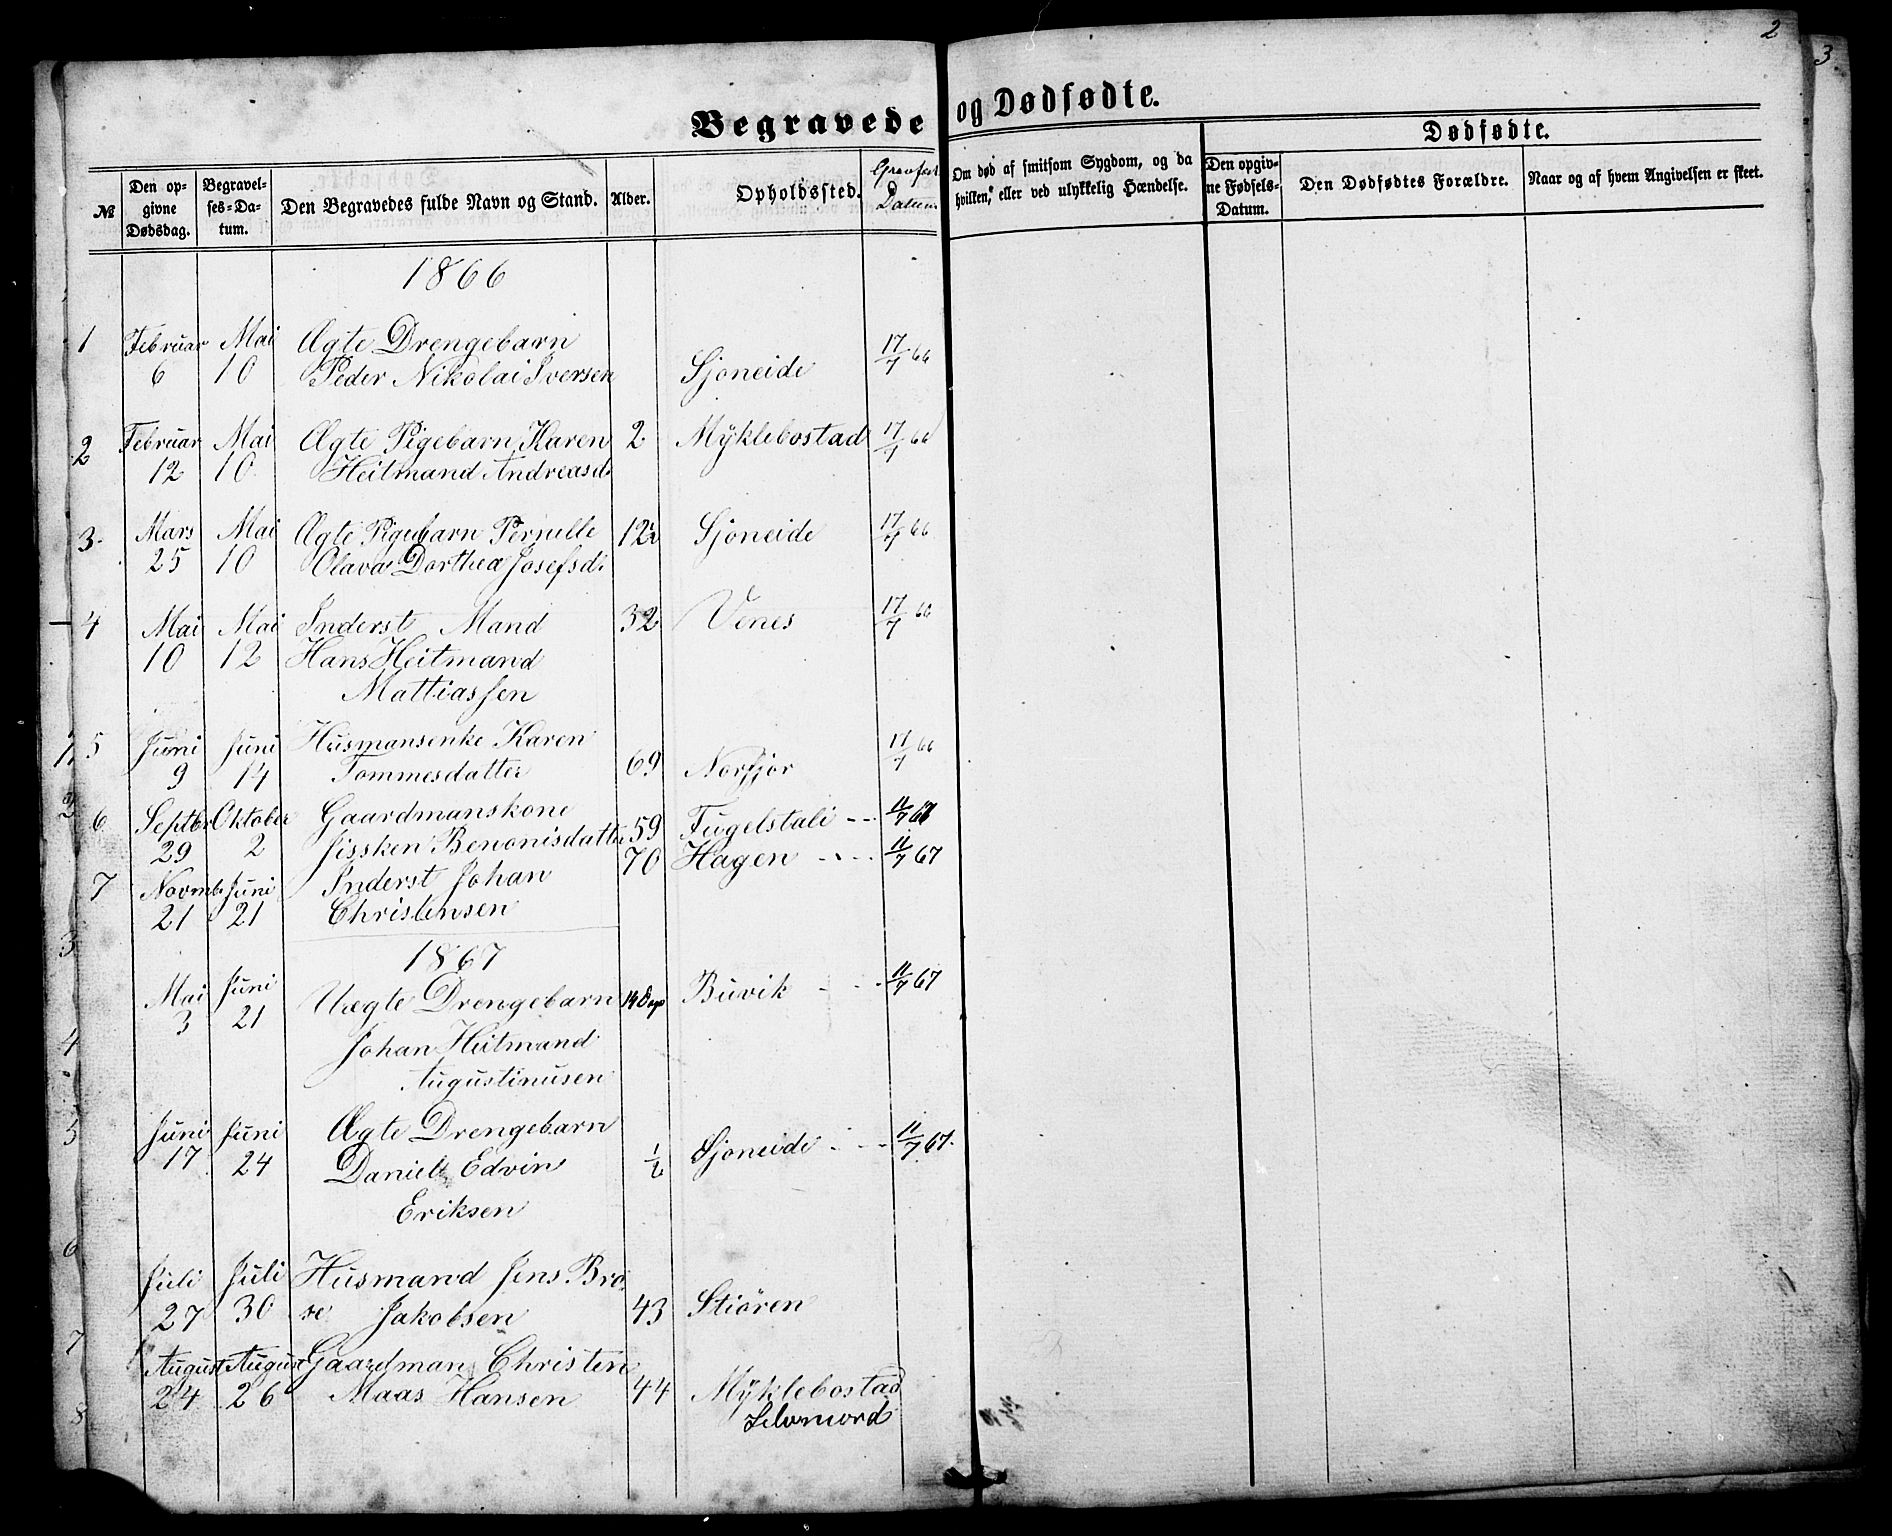 2
3
Begravede og Dødfødte.
Dødfødte.
№
Den opgivne Dødsdag.
Begravelses-Datum.
Den Begravedes fulde Navn og Stand.
Alder.
Opholdssted.
Datum
Om død af smitsom Sygdom, og da hvilken, eller ved ulykkelig Hændelse.
Den opgivne Fødsels-Datum.
Den Dødfødtes Forældre.
Naar og af hvem Angivelsen er skeet.
1866
1 Februar Mai Ægte Drengebarn
6 10 Peder Nikolai Iversen Sjoneide 17/7 66
2 Februar Mai Ægte Pigebarn Karen 2 Mÿklebostad 17/7 66
12 10 Heitmand Andreasd.
3. Mars Mai Ægte Pigebarn Pernille 12 Sjoneide 17/7 66
25 10 Olava Dorthea Josefsd.
4 Mai Mai Inderst Mand 32 Venes 17/7 66
10 12 Hans Heitmand
Mattiassen
5 Juni Juni Husmansenke Karen 17/7 66
9 14 Tommesdatter 69 Norfjor
6 Septbr Oktober Gaardmanskone 59 Fugelstali -- 11/7 67
29 2 Jissken Benonisdatter
7 Novmb Juni Inderst Johan 70 Hagen - - - 11/7 67
21 21 Christensen
1867
Mai Juni Uægte Drengebarn 14 Dage Buvik - - - 11/7 67
3 21 Johan Heitmand
Augustinusen
Juni Juni Ægte Drengebarn
17 24 Daniel Edvin 1/2 Sjoneide - - - 11/7 67.
Eriksen
Juli Juli Husmand Jens Bro
27 30 se Jakobsen 43 Stiøren
August August Gaardman Christen
24 26 Maas Hansen 44 Mÿklebostad
Selvmord